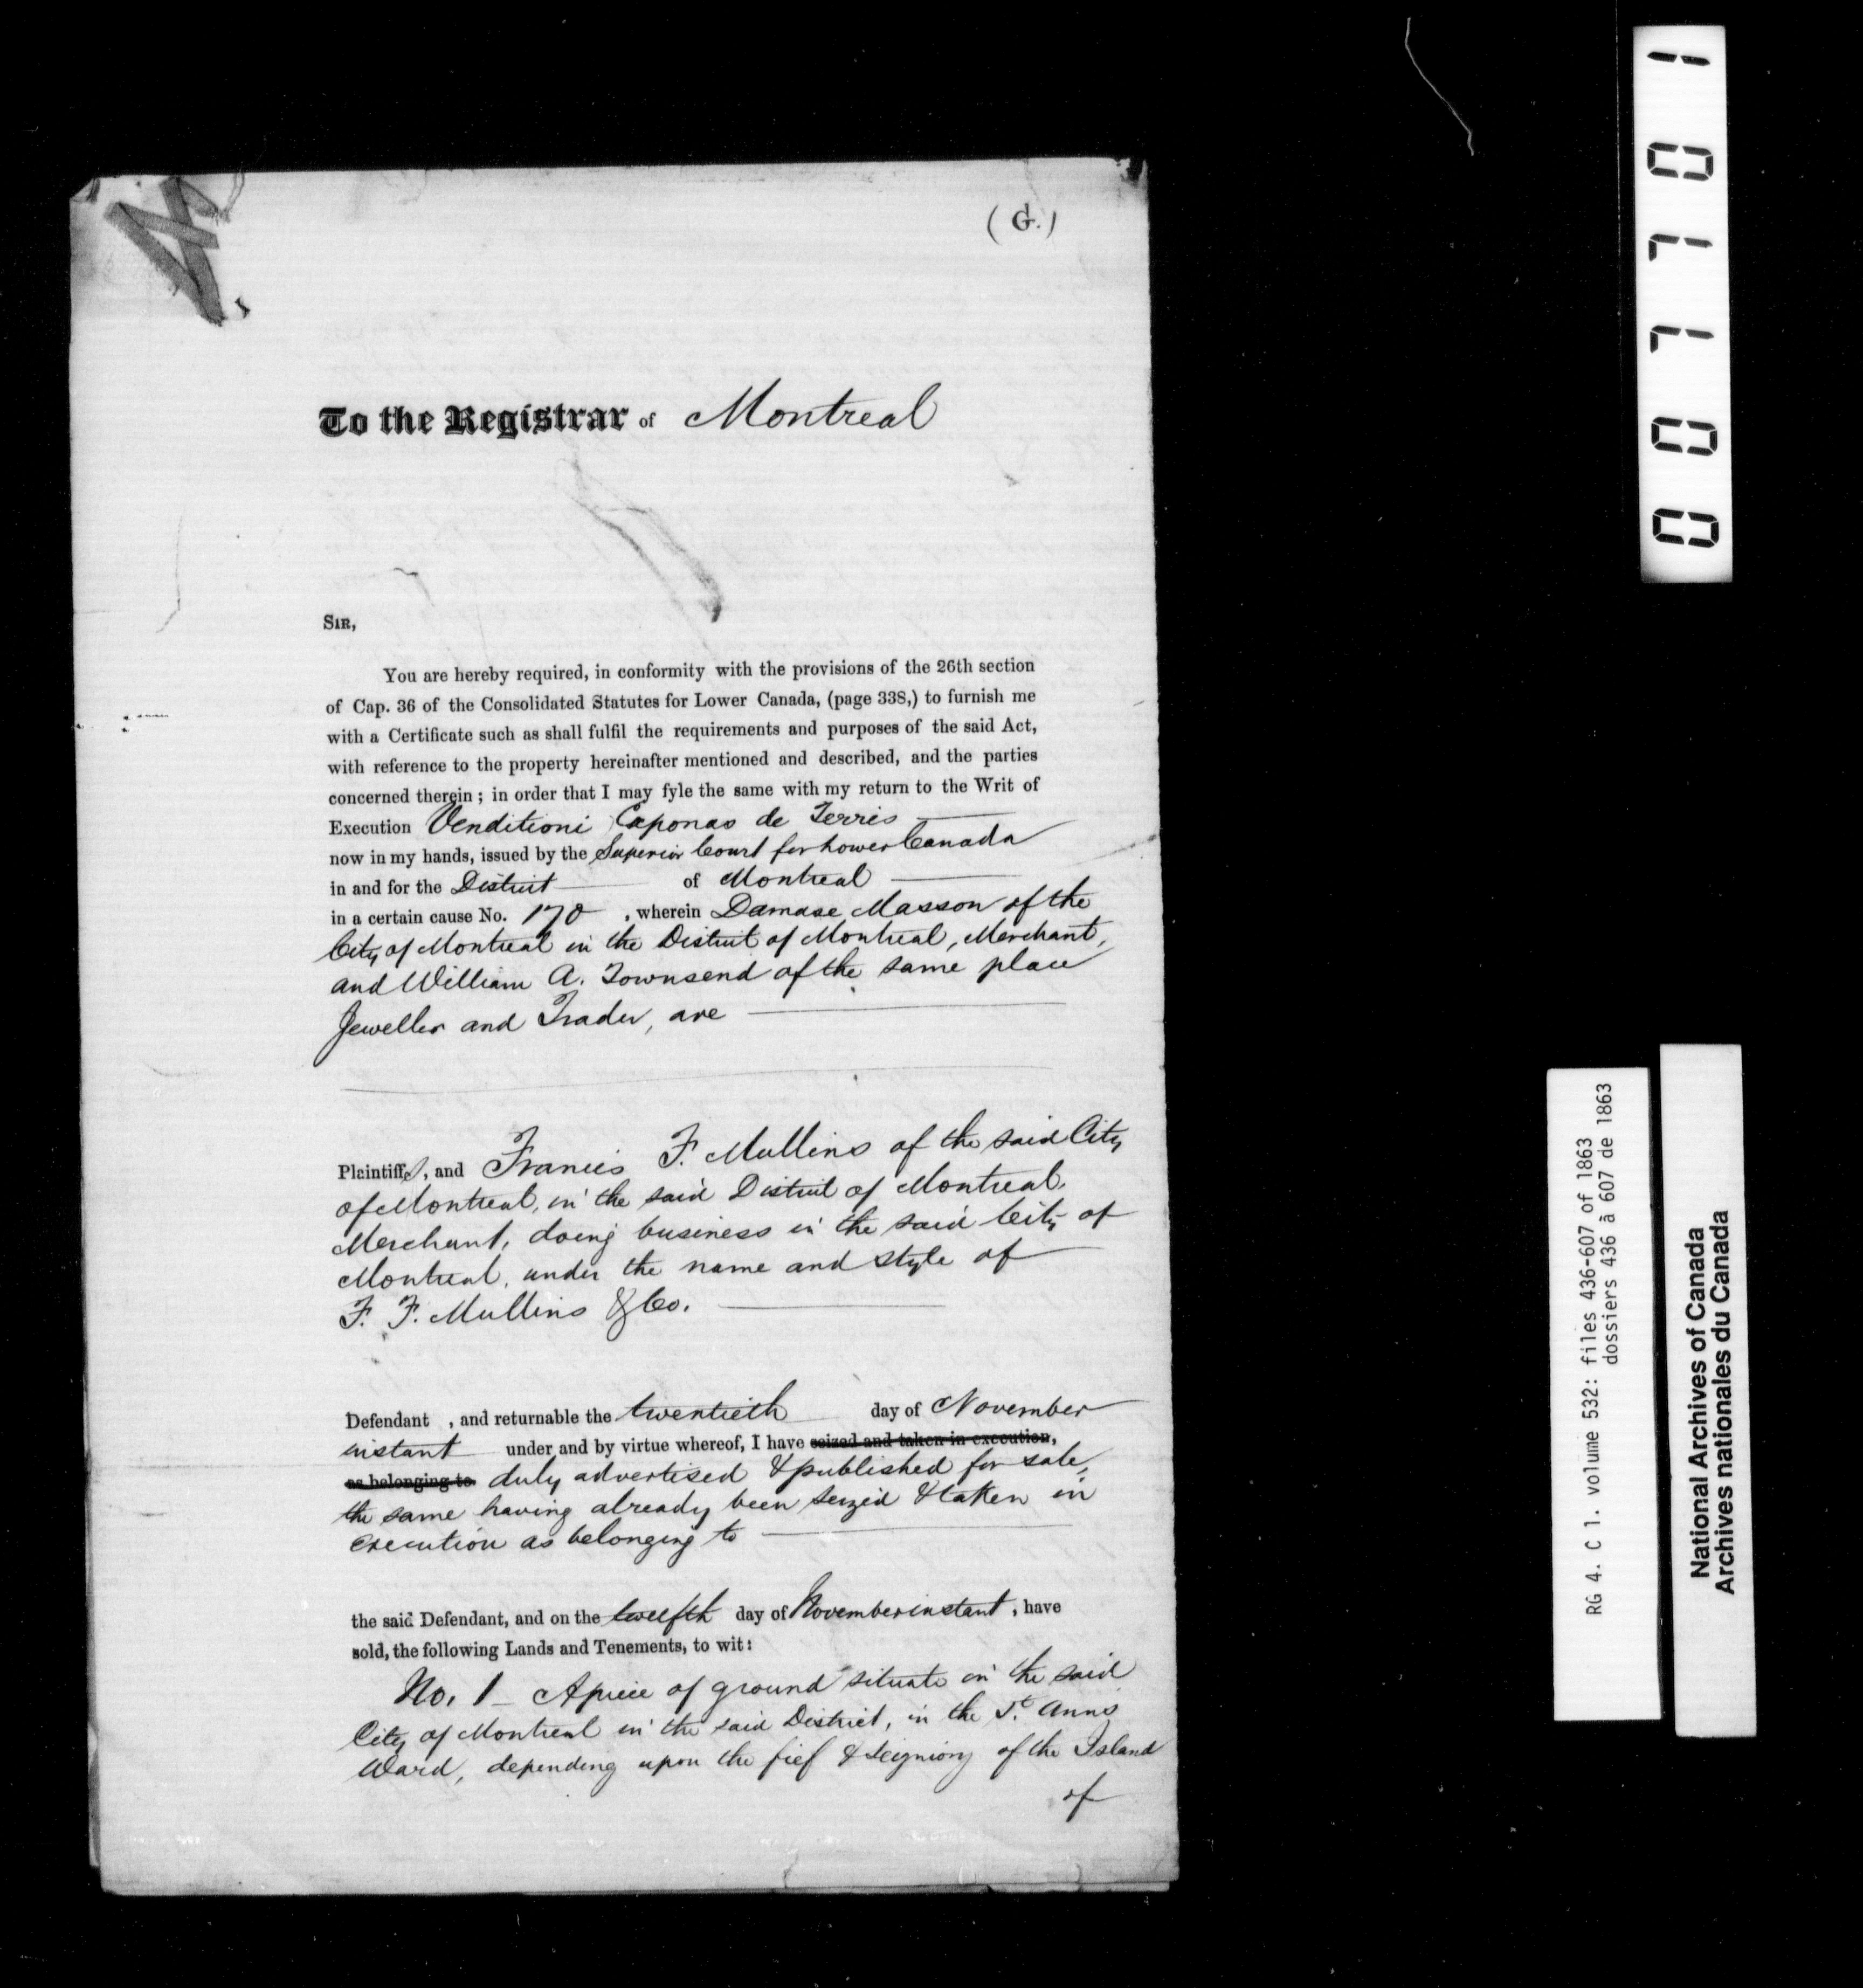 (G.)
To the Registrar of Montreal
SIR,
You are hereby required, in conformity with the provisions of the 26th section
of Cap. 36 of the Consolidated Statutes for Lower Canada, (page 338,) to furnish me
with a Certificate such as shall fulfil the requirements and purposes of the said Act,
with reference to the property hereinafter mentioned and described, and the parties
concerned therein; in order that I may fyle the same with my return to the Writ of
Execution Venditioni Exponas de Terris
now in my hands, issued by the Superior Court for Lower Canada
in and for the District of Montreal
in a certain cause No. 170, wherein Damase Masson of the
City of Montreal in the District of Montreal, Merchant,
and William A. Townsend of the same place
Jeweller and Trader, are
Plaintiffs, and Francis F. Mullins of the said City
of Montreal, in the said District of Montreal,
Merchant, doing business in the said City of
Montreal, under the name and style of
F. F. Mullins & Co.
Defendant , and returnable the twentieth day of November
instant under and by virtue whereof, I have seized and taken in execution,
as belonging to duly advertised & published for sale,
the same having already been seized & taken in
execution as belonging to
the said Defendant, and on the twelfth day of November instant, have
sold, the following Lands and Tenements, to wit:
No. 1 - A piece of ground situate in the said
City of Montreal in the said District, in the St. Anns
Ward, depending upon the fief & Seigniory of the Island
of
007701
RG 4. C 1. volume 532: files 436-607 of 1863
dossiers 436 à 607 de 1863
National Archives of Canada
Archives nationales du Canada